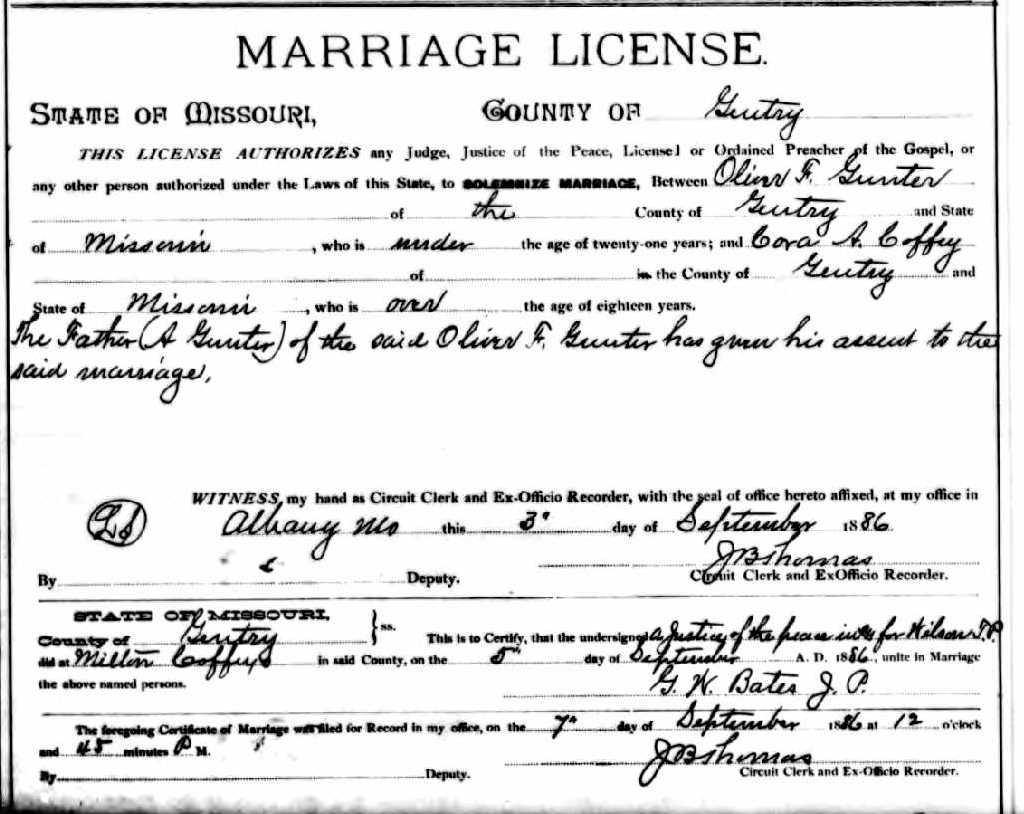 MARRIAGE LICENSE.
STATE OF MISSOURI, COUNTY OF Gentry
THIS LICENSE AUTHORIZES any Judge, Justice of the Peace, Licensed or Ordained Preacher of the Gospel, or
any other person authorized under the Laws of this State, to SOLEMNIZE MARRIAGE, Between Oliver F. Gunter
of the County of Gentry and State
of Missouri, who is under the age of twenty-one years; and Cora A. Coffey
of in the County of Gentry and
State of Missouri, who is over the age of eighteen years.
The Father (A Gunter) of the said Oliver F. Gunter has given his assent to the
said marriage,
WITNESS, my hand as Circuit Clerk and Ex-Officio Recorder, with the seal of office hereto affixed, at my office in
LS Albany Mo this 3" day of September 1886.
J B Thomas
By Deputy. Circuit Clerk and ExOfficio Recorder.
STATE OF MISSOURI,
County of Gentry } ss. This is to Certify, that the undersigned a Justice of the peace in & for Wilson T.P.
did at Milton Coffeys in said County, on the 5" day of September A. D. 1886., unite in Marriage
the above named persons. G. W. Bates J. P.
The foregoing Certificate of Marriage was filed for Record in my office, on the 7" day of September 1886 at 12 o'clock
and 45 minutes P M. J B Thomas
By Deputy. Circuit Clerk and Ex-Officio Recorder.